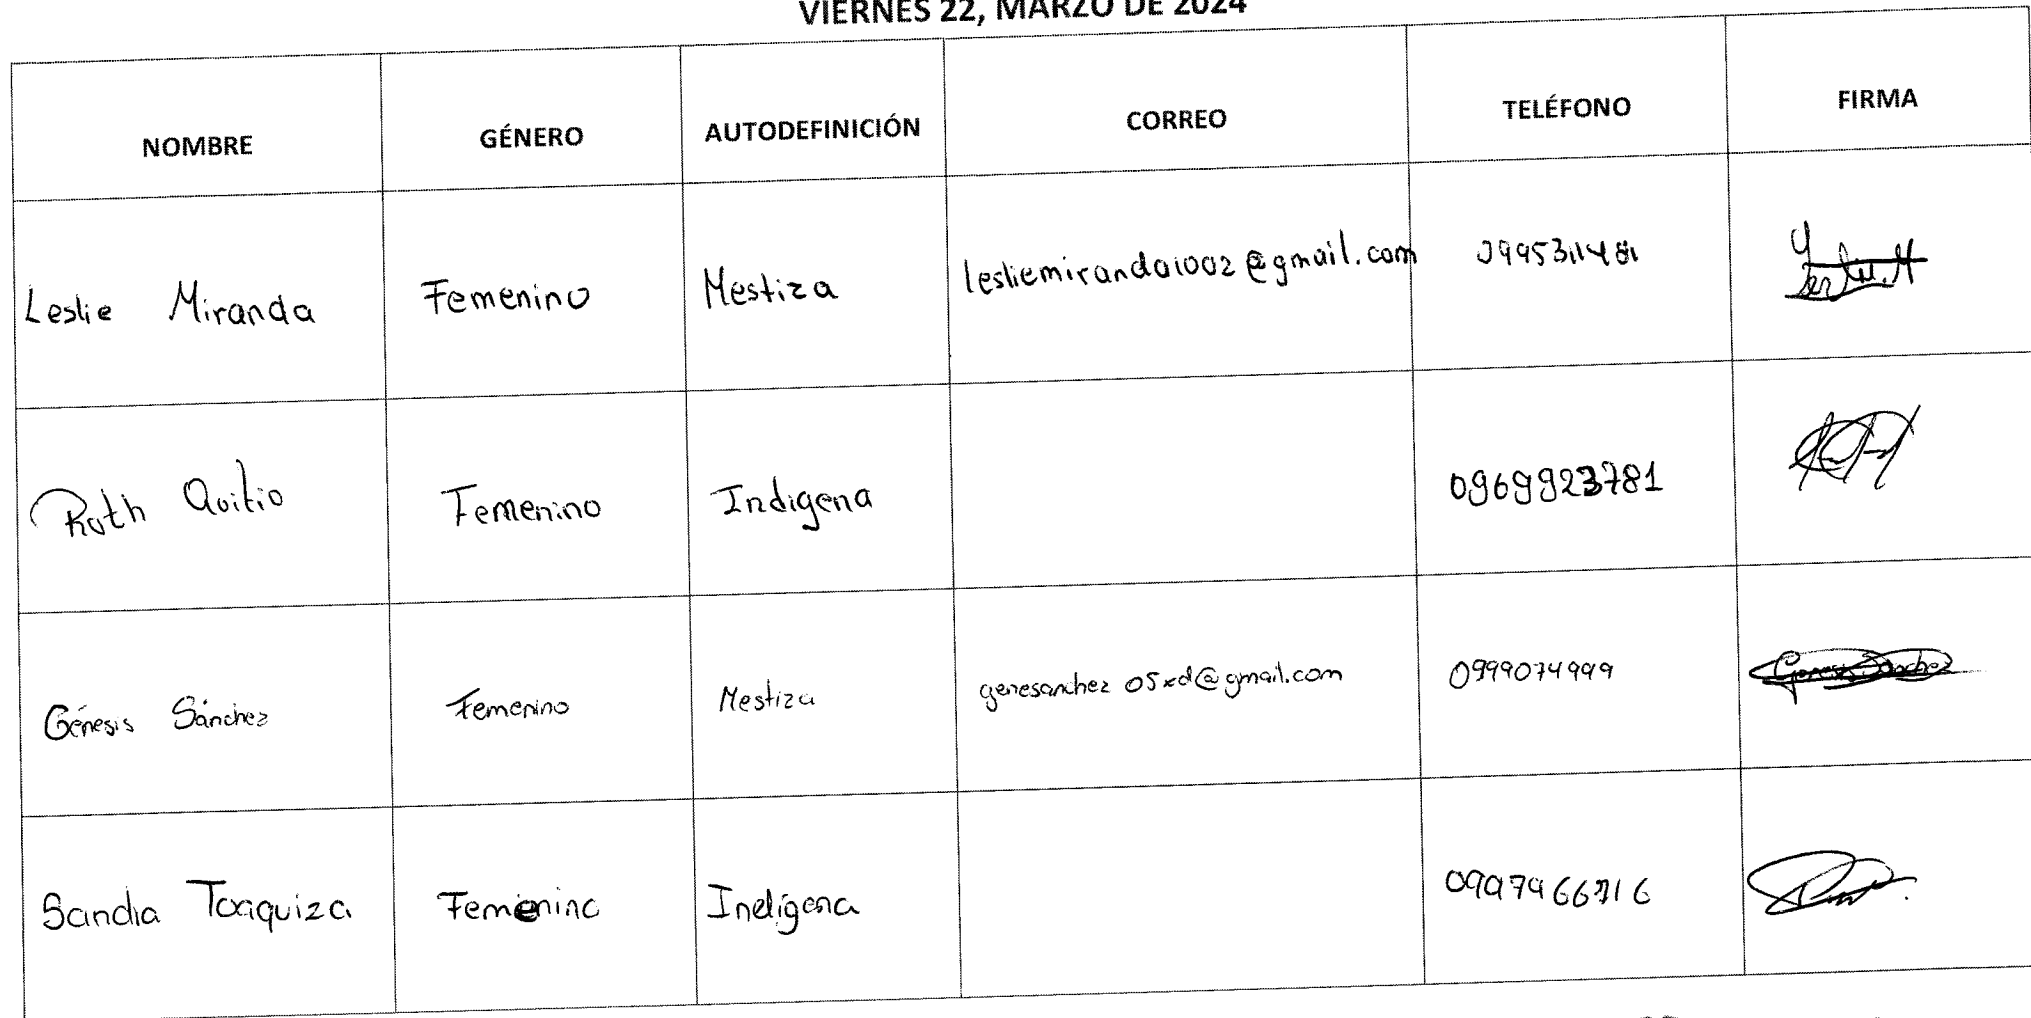 VIERNES 22, MARZO DE 2024
NOMBRE GÉNERO AUTODEFINICIÓN CORREO TELÉFONO FIRMA
Leslie Miranda Femenino Mestiza lesliemiranda1002@gmail.com
Ruth Quitio Femenino Indigena 0969923781
Génesis Sánchez Femenino Mestiza genesanchez05xd@gmail.com 0999074999 Genesis Sanchez
Sandia Toaquiza Femenino Indígena